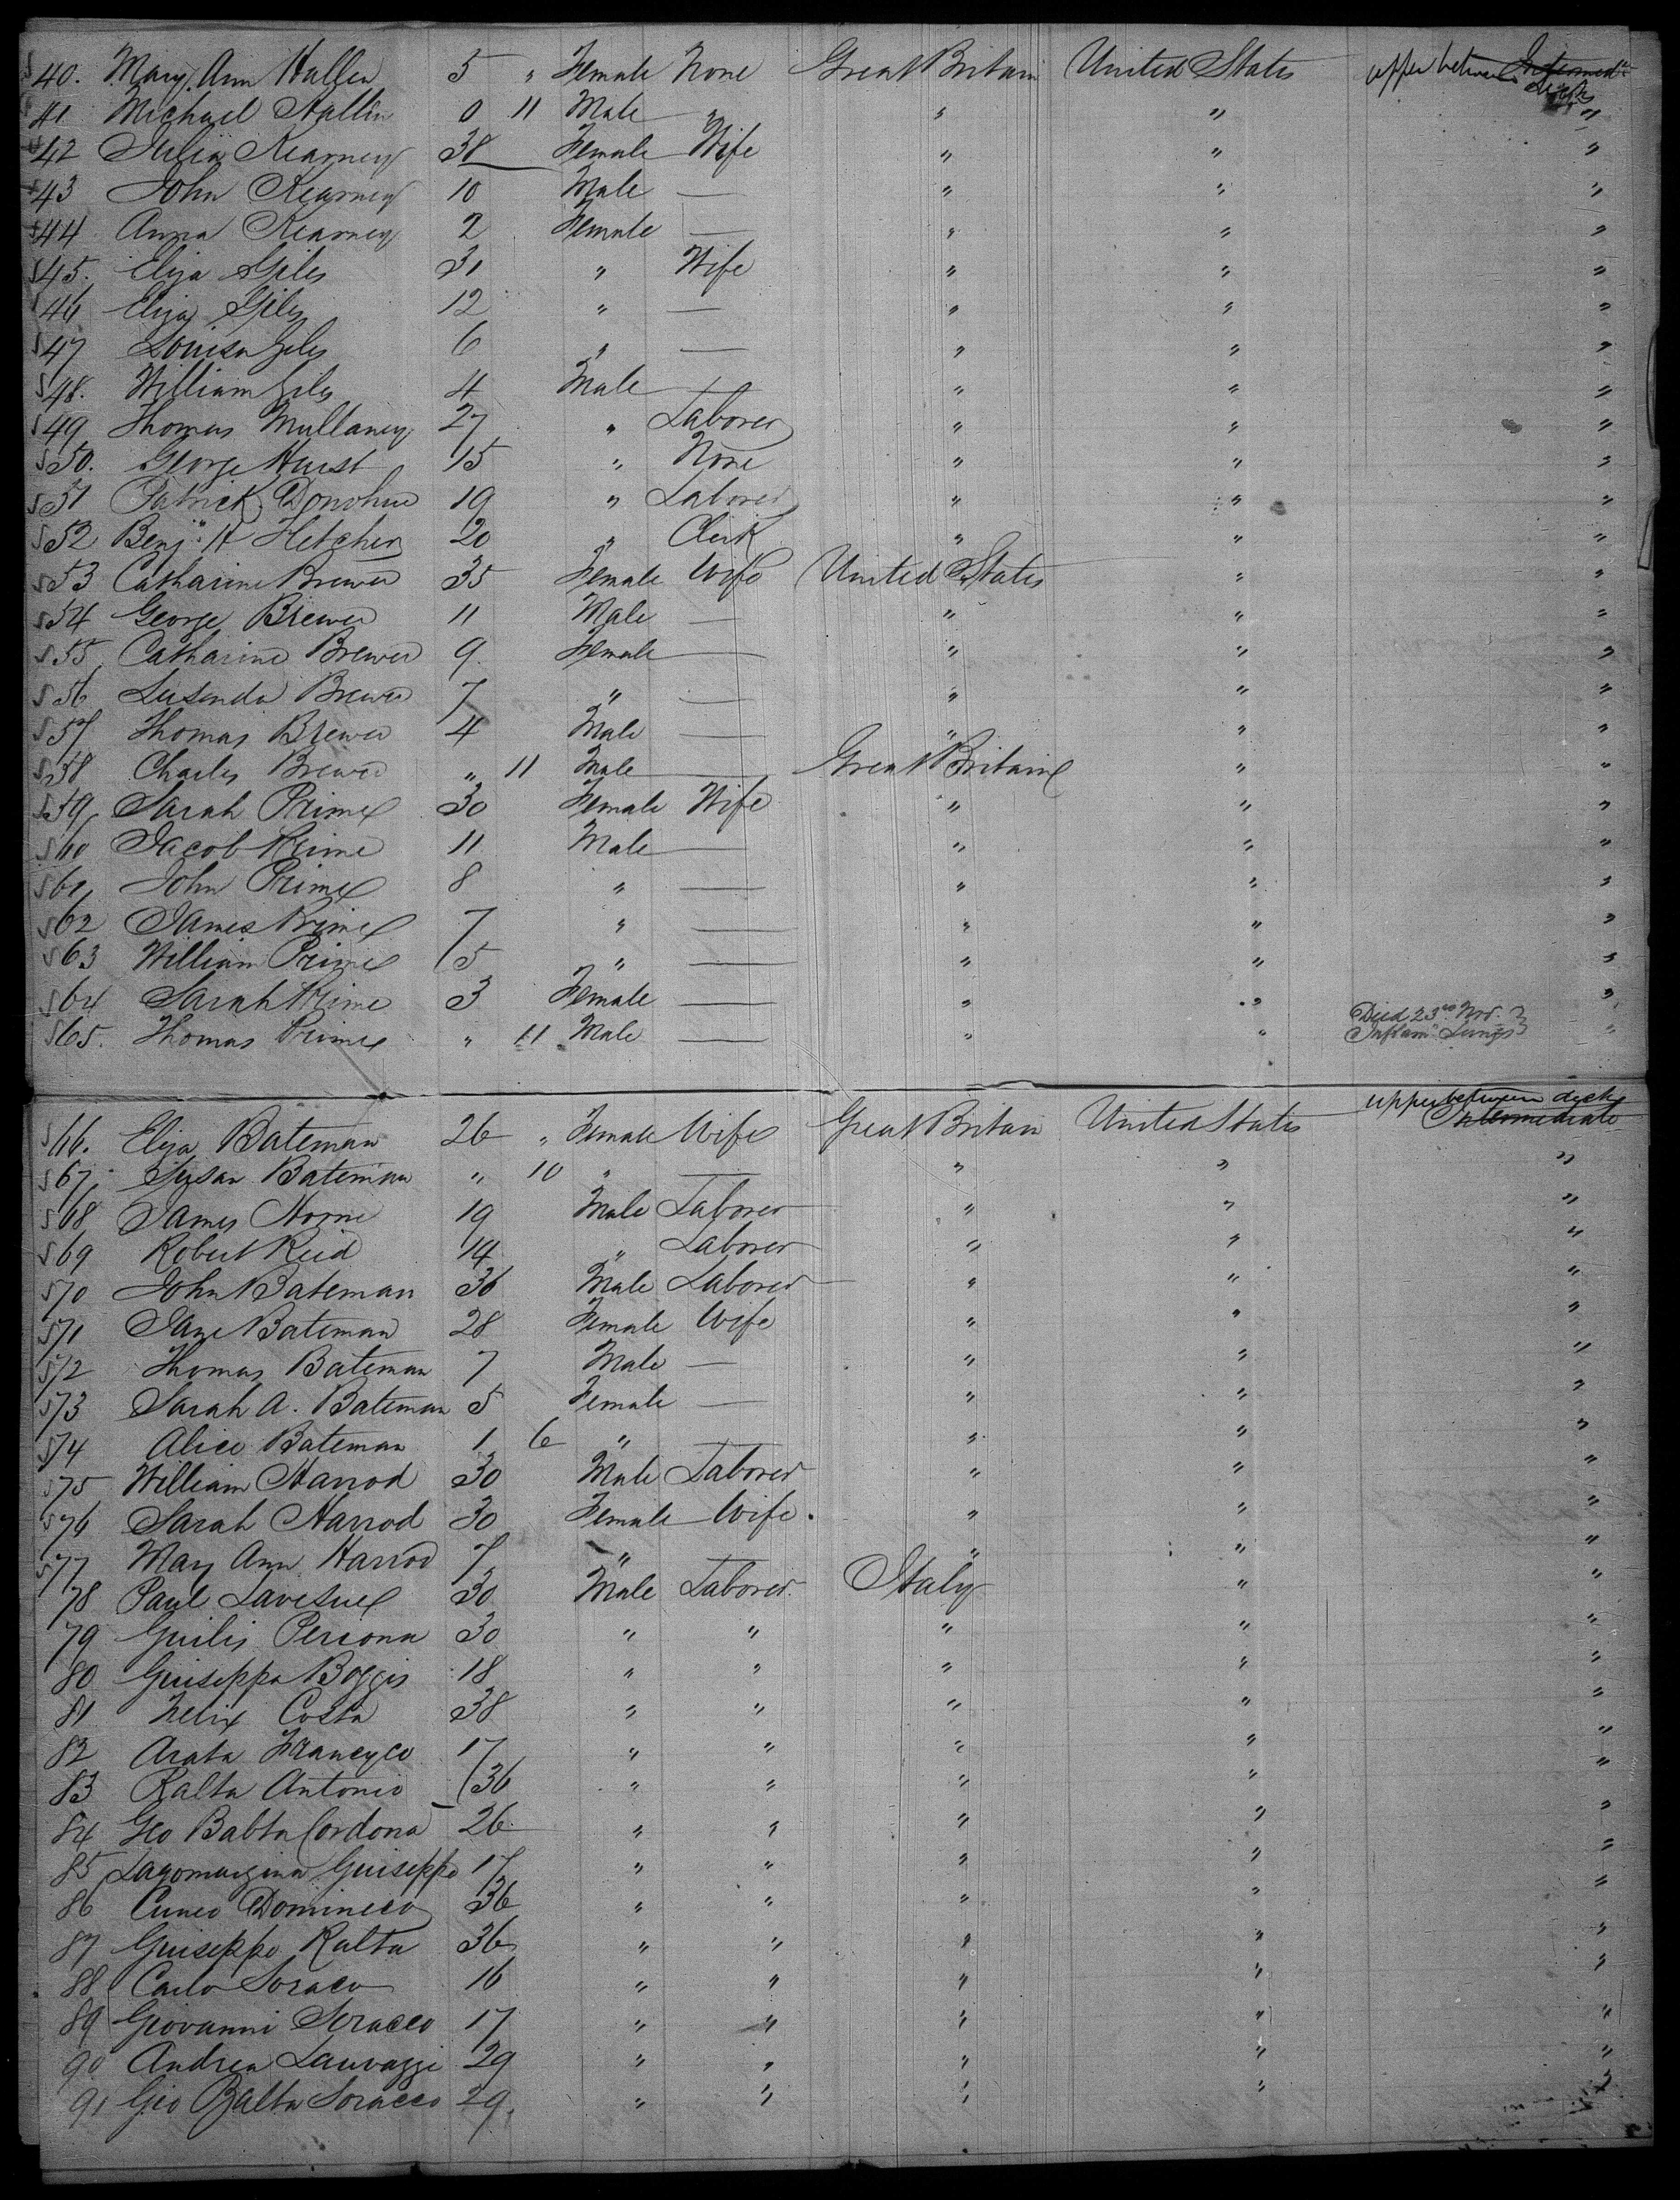 40. Mary Ann Hallen 5 " Female None Great Britain United States upper between Intermed. decks
41 Michael Hallin 0 11 Male " " " "
42 Julia Kearney 38 Female Wife " " "
43 John Kearney 10 Male — " " "
44 Anna Kearney 2 Female — " " "
45. Eliza Giles 31 " Wife " " "
46 Eliza Giles 12 " — " " "
47 Louisa Giles 6 " — " " "
48. William Giles 4 Male — " " "
49 Thomas Mullaney 27 " Laborer " " "
50. George Hurst 15 " None " " "
51 Patrick Donohue 19 " Laborer " " "
52 Benj. H Fletcher 20 " Clerk " " "
53 Catharine Brewer 35 Female Wife United States " "
54 George Brewer 11 Male — " " "
55 Catharine Brewer 9. Female — " " "
56 Lusenda Brewer 7 " — " " "
57 Thomas Brewer 4 Male — " " "
58 Charles Brewer " 11 Male — Great Britain " "
59 Sarah Prime 30 Female Wife " " "
60 Jacob Prime 11 Male — " " "
61 John Prime 8 " — " " "
62 James Prime 7 " — " " "
63 William Prime 5 " — " " "
64 Sarah Prime 3 Female — " " "
65. Thomas Prime " 11 Male — " " Died 23rd Nov. Inflam" Lungs "
66. Eliza Bateman 26 " Female Wife Great Britain United States upper between decks Intermediate
67 Susan Bateman " 10 " — " " "
68 James Horne 19 Male Laborer " " "
69 Robert Reid 14 " Laborer " " "
70 John Bateman 36 Male Laborer " " "
71 Jane Bateman 28 Female Wife " " "
72 Thomas Bateman 7 Male — " " "
73 Sarah A. Bateman 5 Female — " " "
74 Alice Bateman 1 6 " — " " "
75 William Harrod 30 Male Laborer " " "
76 Sarah Harrod 30 Female Wife. " " "
77 Mary Ann Harrod 7 " — " " "
78 Paul 30 Male Laborer Italy " "
79 Guilis Persona 30 " " " " "
80 Guiseppa Boggis 18 " " " " "
81 Felix Costa 38 " " " " "
82 Arata Francyco 17 " " " " "
83 Ralta Antonio 36 " " " " "
84 Geo Babta Cordona 26 " " " " "
85 Lagomargina Guiseppe 17 " " " " "
86 Cuneo Domineco 36 " " " " "
87 Guiseppe Ralta 36 " " " " "
88 Carlo Soraco 16 " " " " "
89 Giovanni Soracco 17 " " " " "
90 Andrea Lauvaggi 29 " " " " "
91 Gio Balta Soracco 29. " " " " "